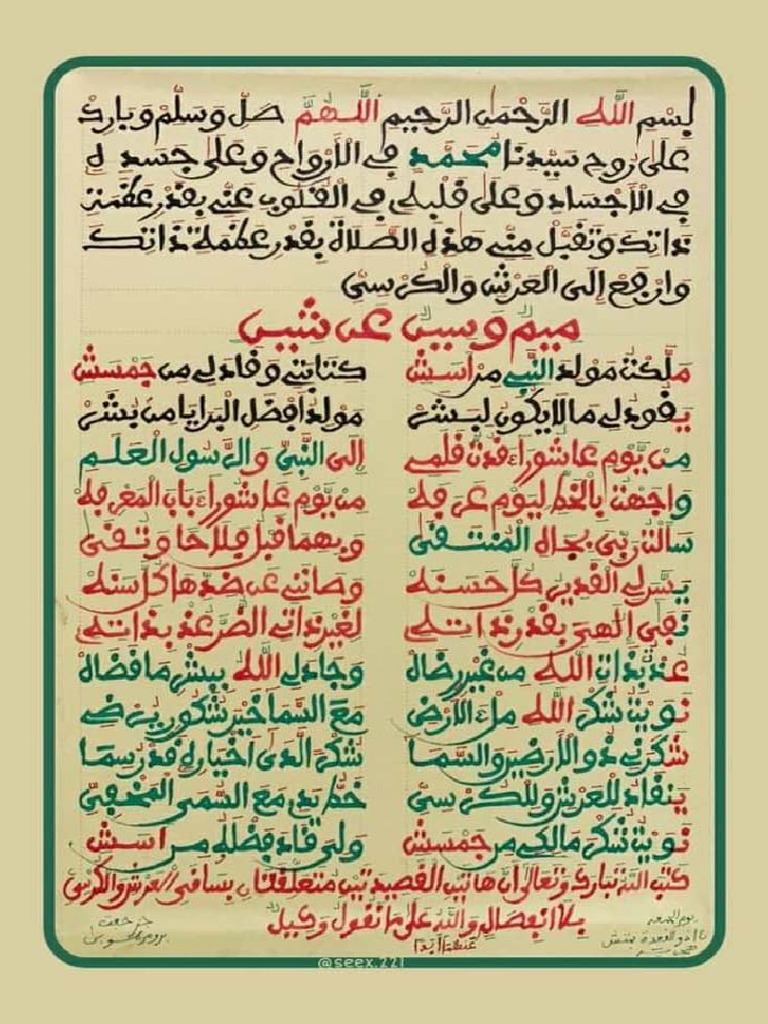 بسم الله الرحمن الرحيم اللهم صل وسلم وبارك
على روح سيدنا محمد في الأرواح وعلى جسده
في الأجساد وعلى قلبه في القلوب عني بقدر عظمة
ذاتك وتقبل مني هذه الصلاة بقدر عظمة ذاتك
وارجع إلى العرش والكرسي
ميم وسين عن شين
ملكت مولد النبي من اسش كتابتي وقاد لي من جمسش
يقود لي ما لا يكون لبشر مولد افضل البرايا من بشر
من يوم عاشوراء قدت قلمي إلى النبي والرسول العلم
واجهت بالخط ليوم عرفه من يوم عاشوراء باب المعرفه
سالت ربي بجاه المنتقى وبهما قبل فلاحا وتقى
ييسر لي القدير كل حسنه وصانني عن ضدها كل سنه
نفى الهي بقدر ذاته لغير ذاتي الضر عند بذاته
عند بذات الله من غير رضاه وجاد لي الله ببشر ما قضاه
نويت شكر الله ملء الأرض مع السما خير شكور يرضي
شكرني ذو الأرضين والسما شكر الذي اخياره قد رسما
ينقاد للعرش وللكرسي خط يدي مع السمي
نويت شكر مالكي من جمسش ولي قاد بفضله من اسش
كتب الله تبارك وتعالى ان هاتين القصيدتين متعلقتان بساقي العرش والكرسي
بلا انفصال والله على ما نقول وكيل
يوم الجمعة
ذو القعدة
@seex.221